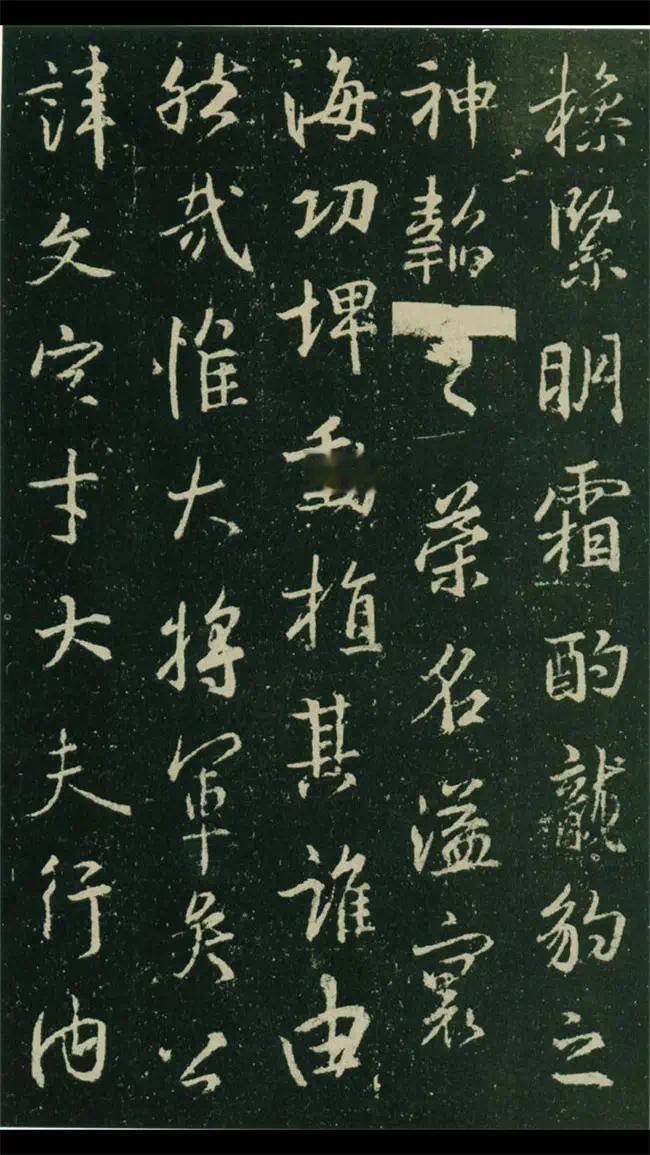 操緊明霜酌龍豹之
神韜榮名溢寰
海功埤動植其誰由
然哉惟大將軍吳公
諱文字才大夫行內